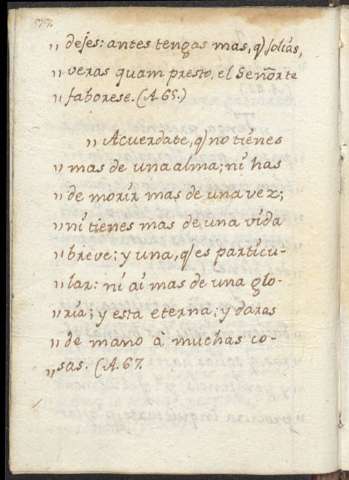 „ dejes: antes tengas mas, q̃ solias,
„ veras quam presto, el Señor te
„ faborese. (A. 65.)
„ Acuerdate, q̃ no tienes
„ mas de una alma; ni has
„ de morir mas de una vez;
„ ni tienes mas de una vida
„ breve; y una, q̃ es particu-
„ lar: ni ai mas de una glo-
„ ria; y esta eterna; y daras
„ de mano à muchas co-
„ sas. (A. 67.